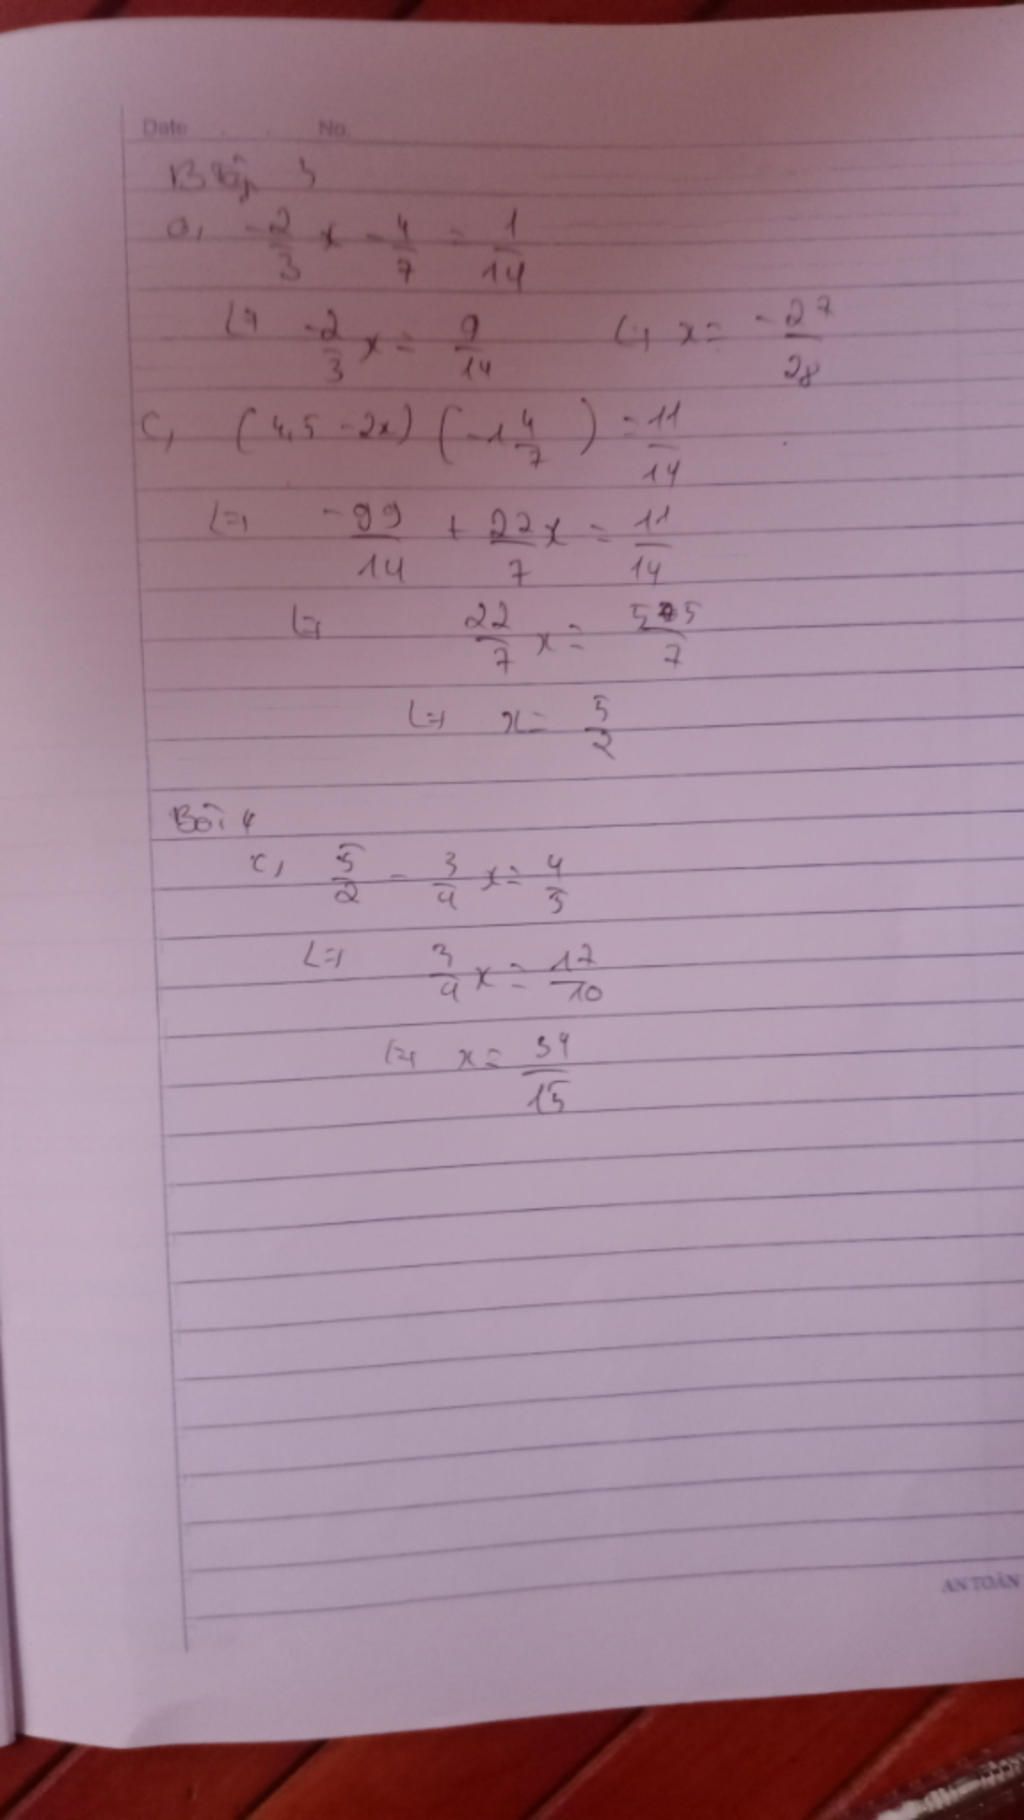 Date No.
Bài 3
a, -2/3 x - 4/7 = 1/14
<=> -2/3 x = 9/14 <=> x = -27/28
c, (4,5 - 2x) (-1 4/7) = 11/14
<=> -99/14 + 22/7 x = 11/14
<=> 22/7 x = 55/7
<=> x = 5/2
Bài 4
c, 5/2 - 3/4 x = 4/5
<=> 3/4 x = 17/10
<=> x = 34/15
AN TOÀN